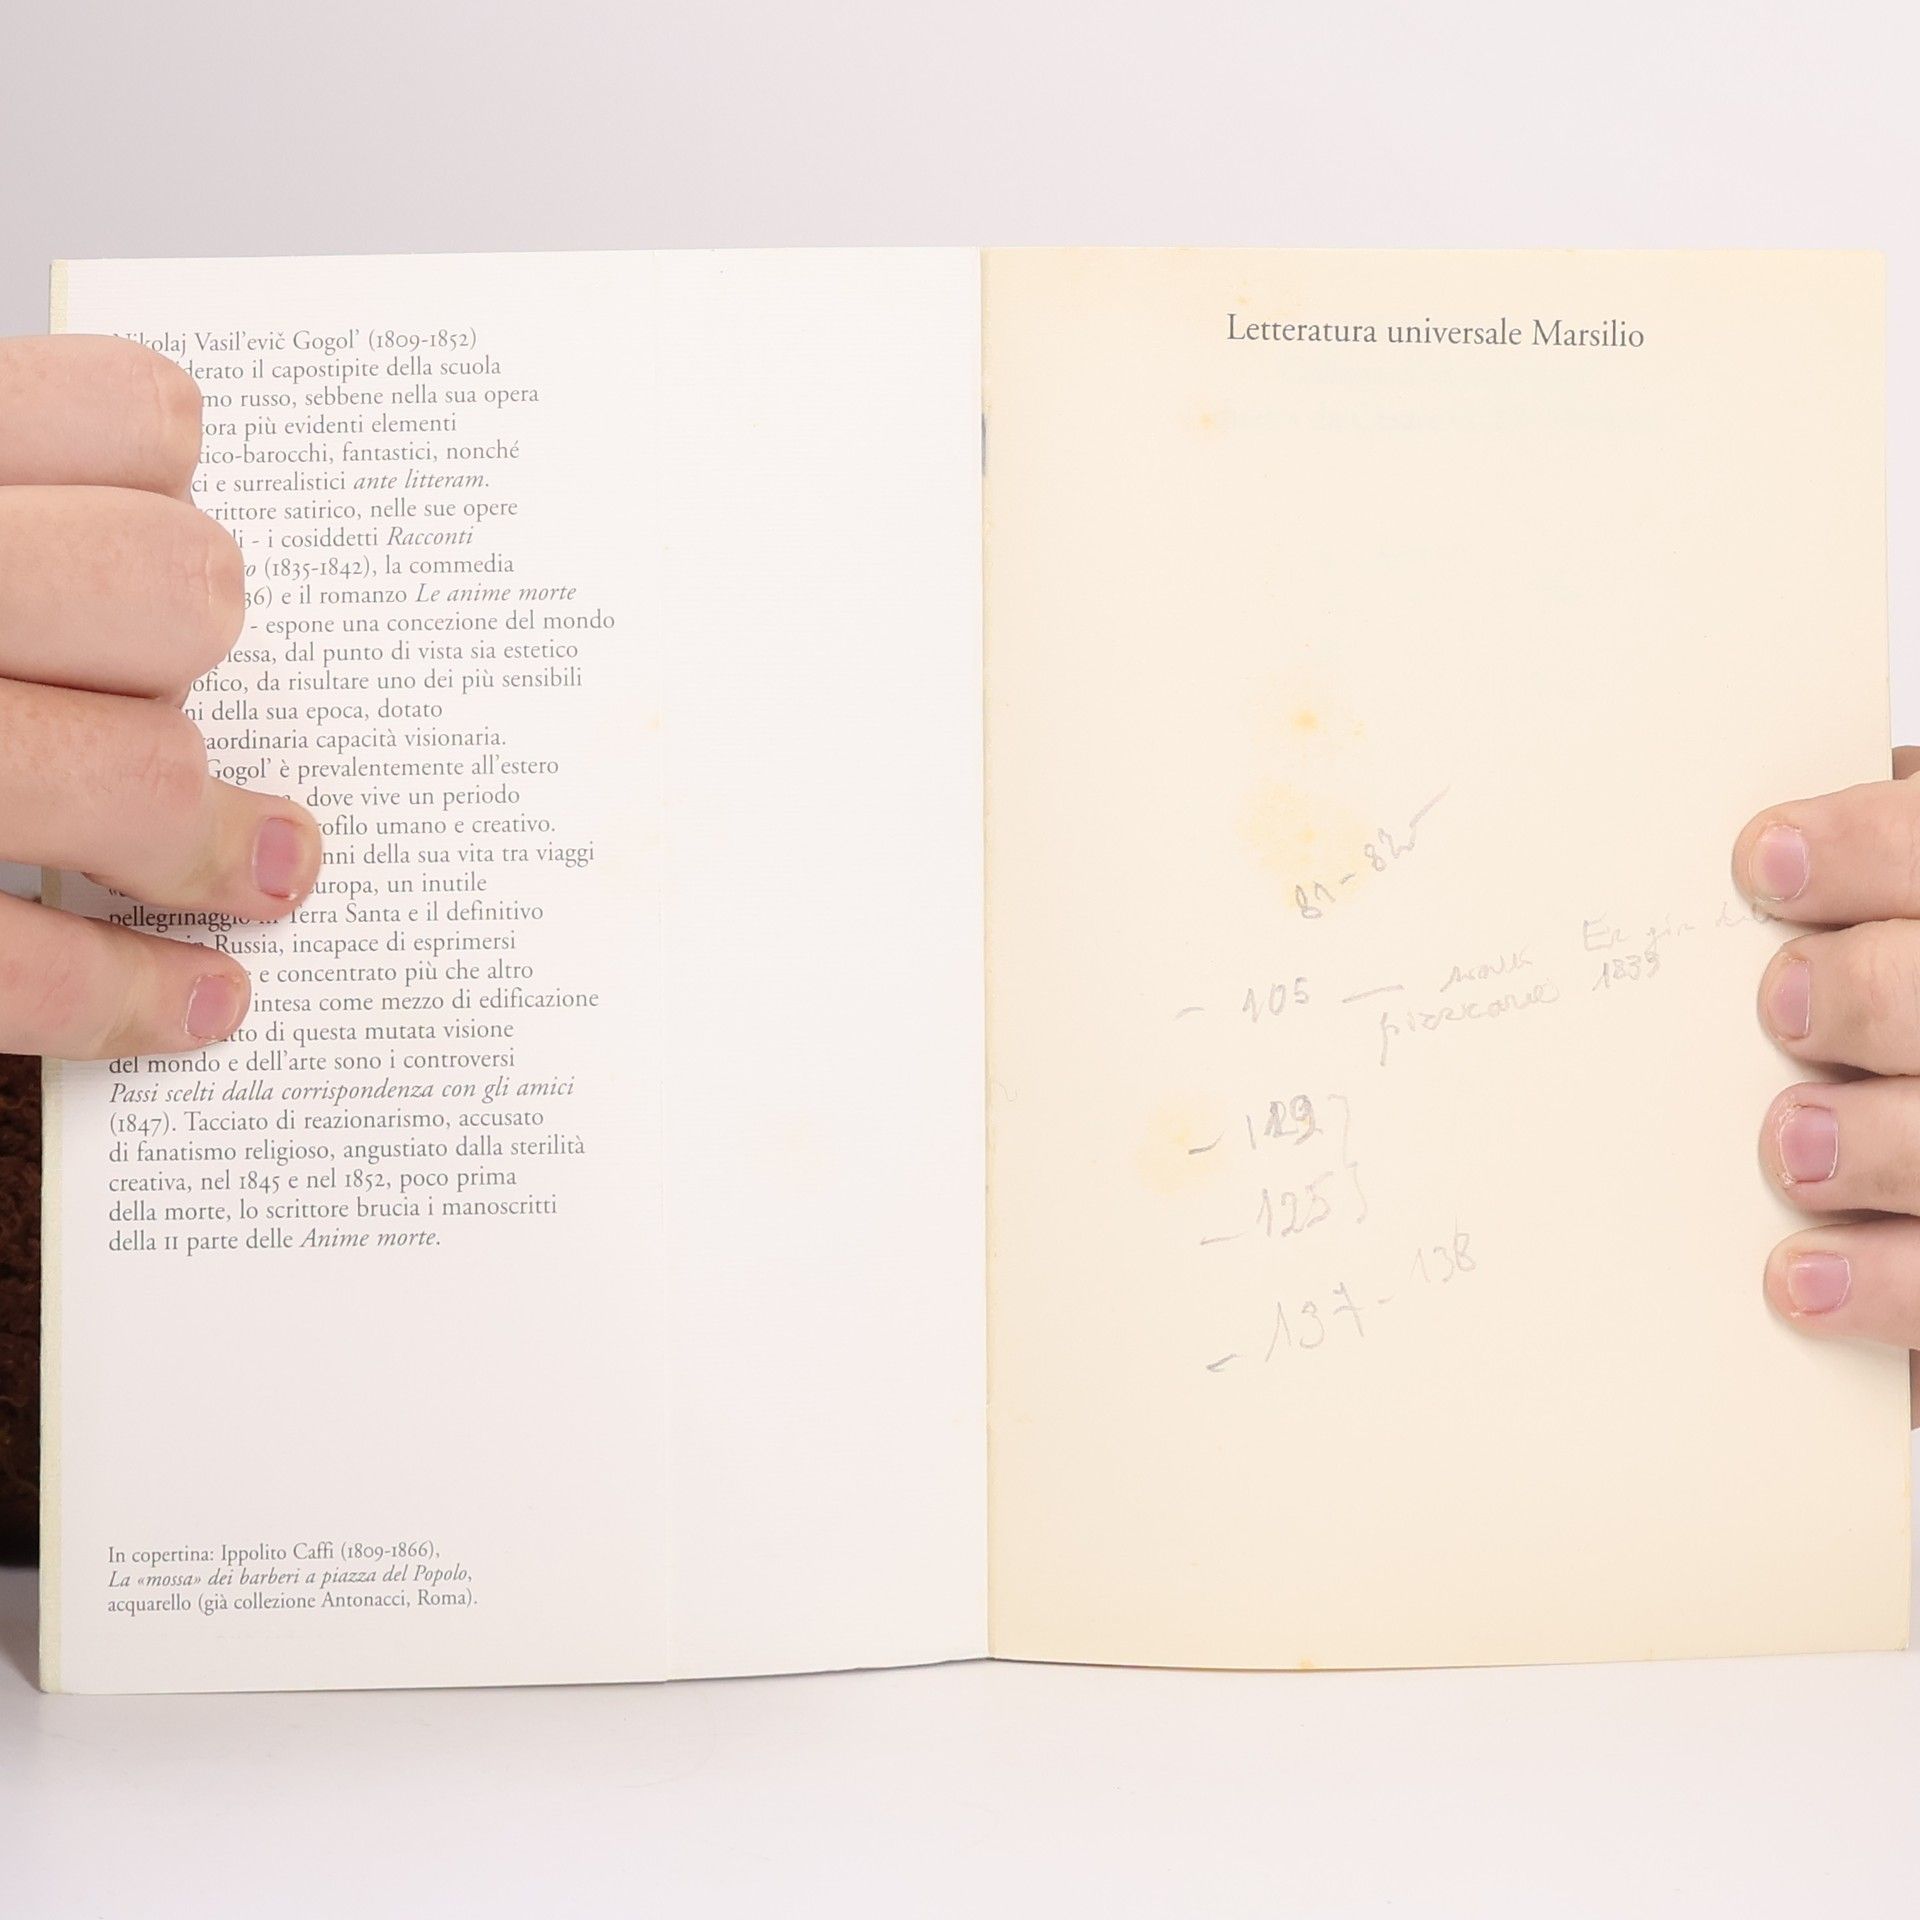 Nikolaj Vasil'evič Gogol' (1809-1852)
il capostipite della scuola
russo, sebbene nella sua opera
più evidenti elementi
fantastici, nonché
e surrealistici ante litteram.
satirico, nelle sue opere
- i cosiddetti Racconti
(1835-1842), la commedia
e il romanzo Le anime morte
- espone una concezione del mondo
dal punto di vista sia estetico
da risultare uno dei più sensibili
della sua epoca, dotato
capacità visionaria.
Gogol' è prevalentemente all'estero
dove vive un periodo
umano e creativo.
della sua vita tra viaggi
un inutile
pellegrinaggio Terra Santa e il definitivo
Russia, incapace di esprimersi
e concentrato più che altro
intesa come mezzo di edificazione
di questa mutata visione
del mondo e dell'arte sono i controversi
Passi scelti dalla corrispondenza con gli amici
(1847). Tacciato di reazionarismo, accusato
di fanatismo religioso, angustiato dalla sterilità
creativa, nel 1845 e nel 1852, poco prima
della morte, lo scrittore brucia i manoscritti
della II parte delle Anime morte.
In copertina: Ippolito Caffi (1809-1866),
La «mossa» dei barberi a piazza del Popolo,
acquarello (già collezione Antonacci, Roma).
Letteratura universale Marsilio
81-82
- 105 —
1839
- 129
- 125
- 137 - 138